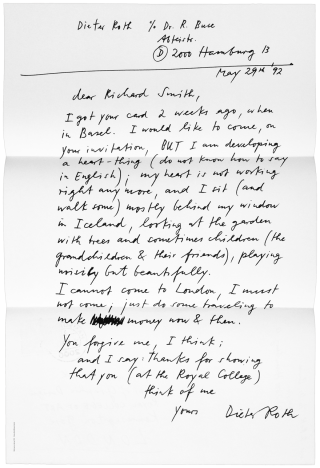 Dieter Roth c/o Dr. R. Buse
Alsterstr.
(D) 2000 Hamburg 13
May 29th, 92
dear Richard Smith,
I got your card 2 weeks ago, when
in Basel. I would like to come, on
your invitation, BUT I am developing
a heart-thing (do not know how to say
in English); my heart is not working
right any more, and I sit (and
walk some) mostly behind my window
in Iceland, looking at the garden
with trees and sometimes children (the
grandchildren & their friends), playing
noisily but beautifully.
I cannot come to London, I must
not come; just do some traveling to
make money now & then.
You forgive me, I think;
and I say: thanks for showing
that you (at the Royal College)
think of me
Yours Dieter Roth